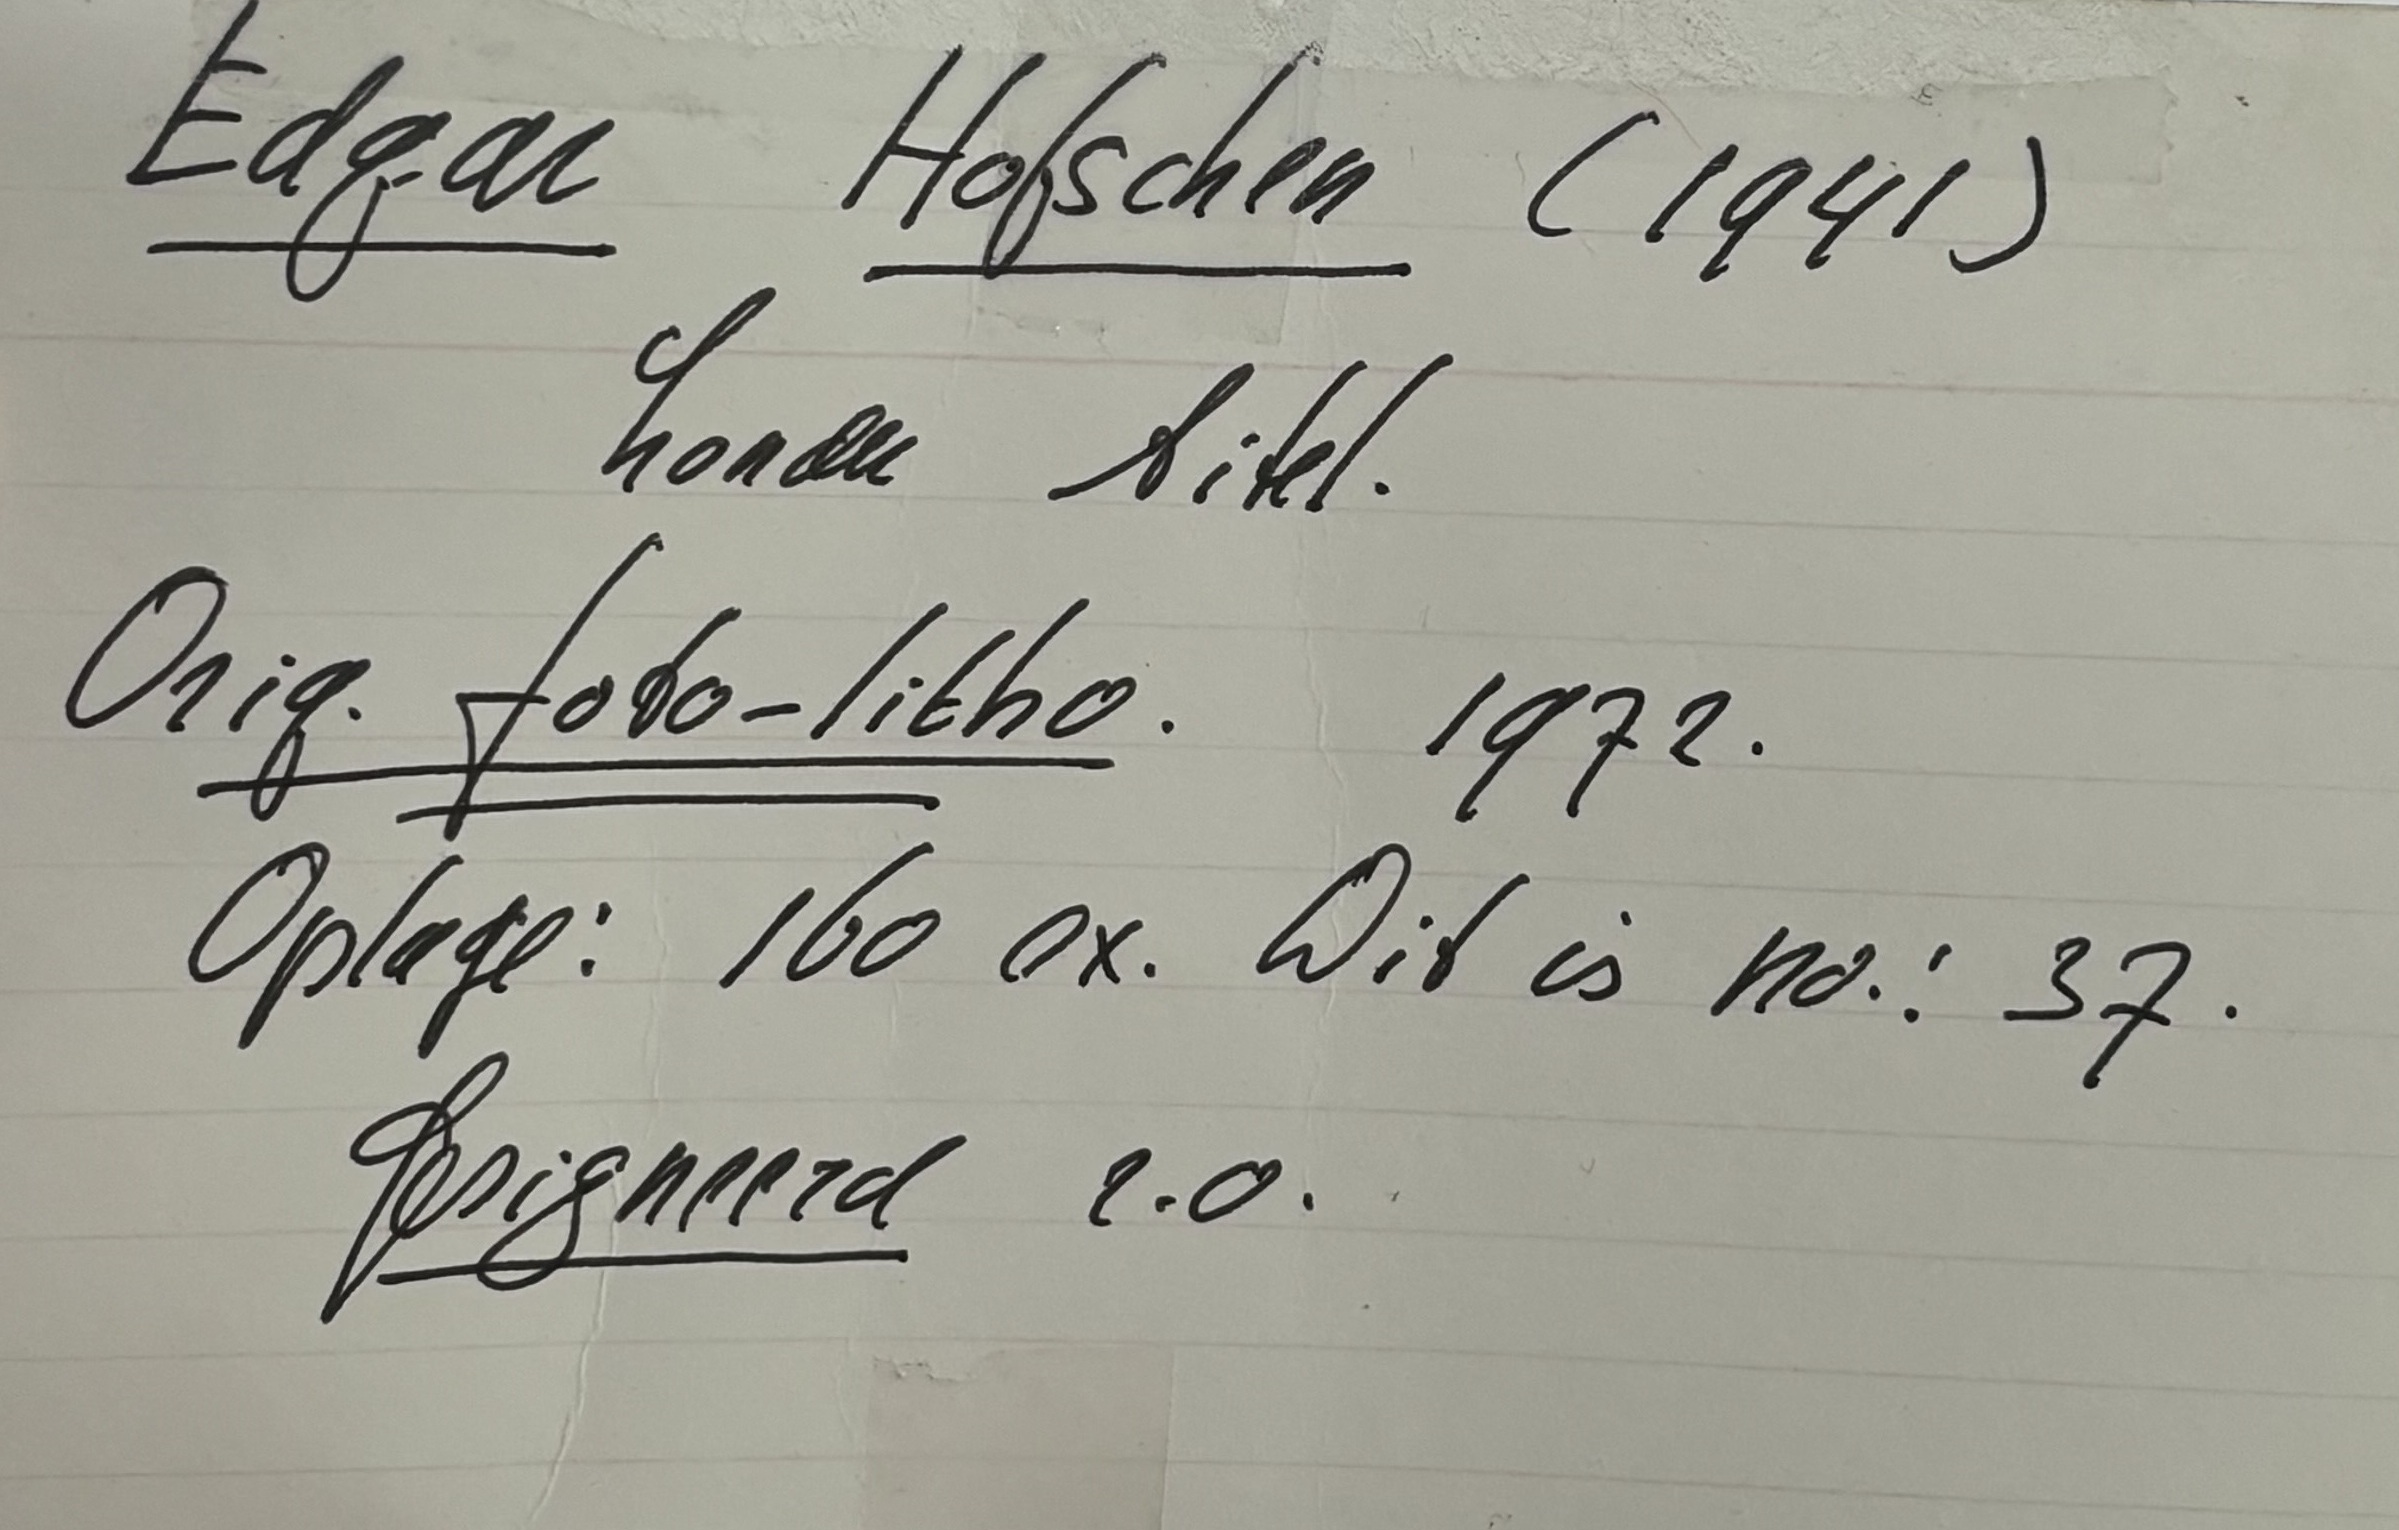 Edgar Hofschen (1941)
Zonder titel.
Orig. foto-litho. 1972.
Oplage: 160 ex. Dit is no.: 37.
Gesigneerd r.o.